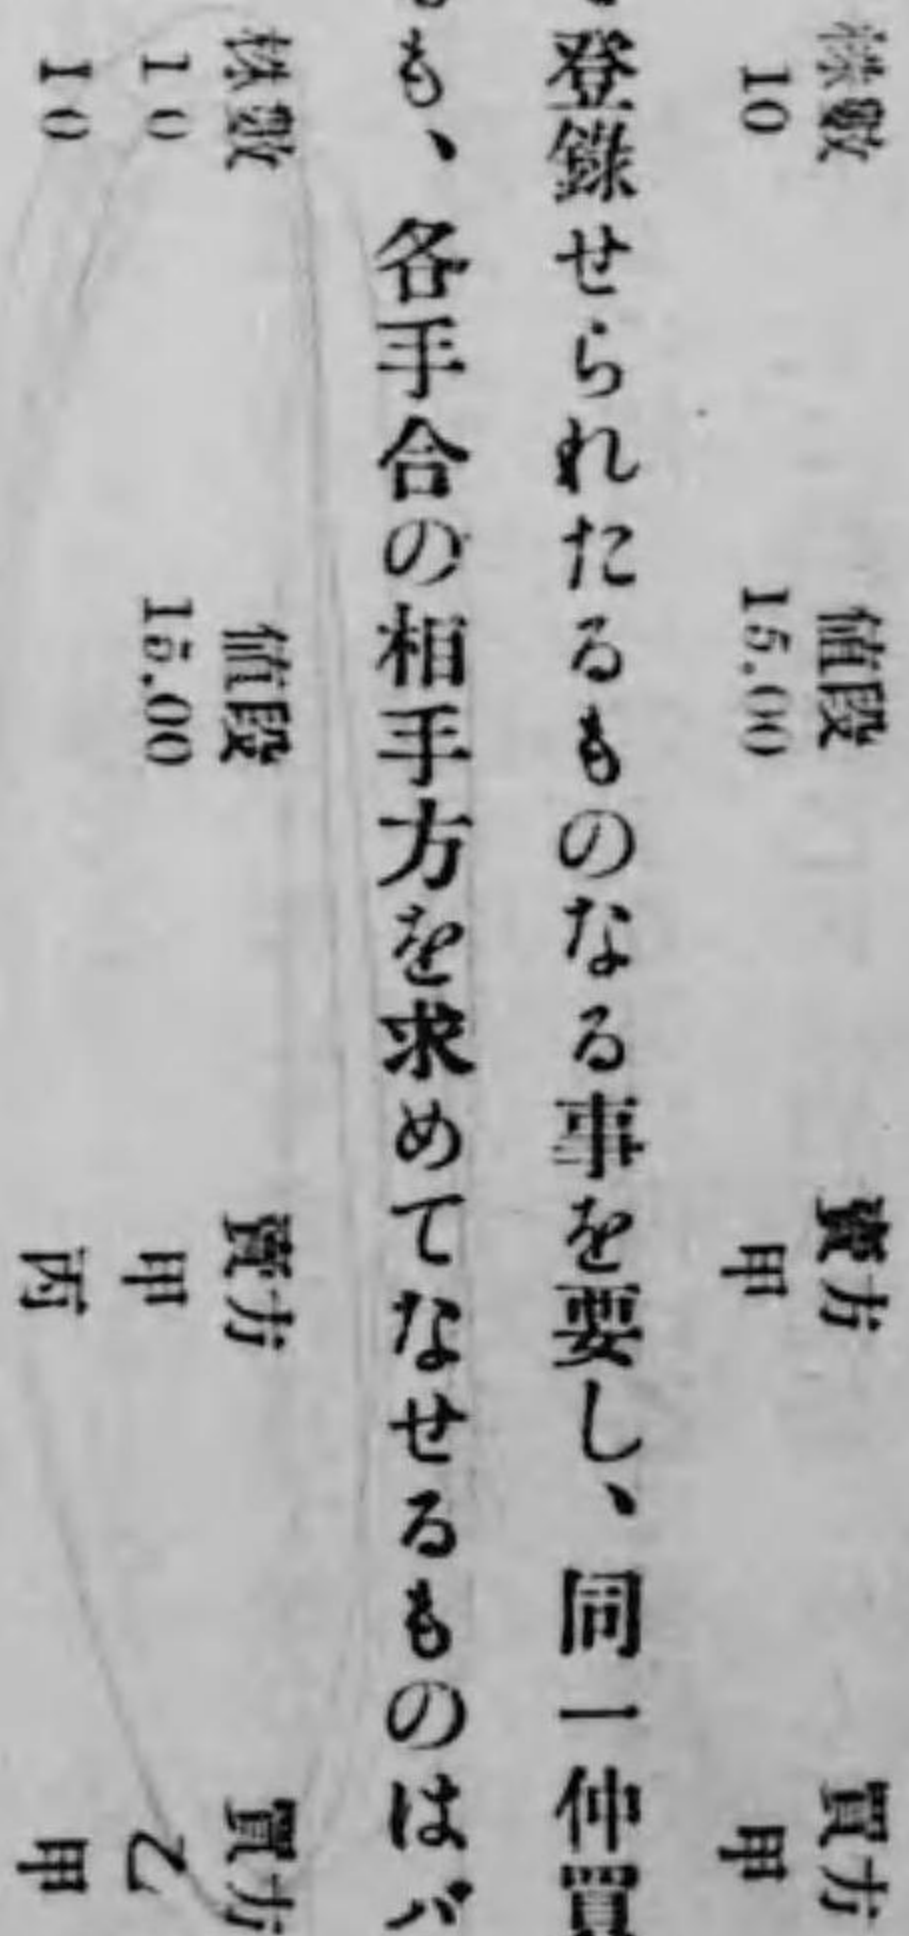 株數 値段 賣方 買方
10 15.00 甲 甲
登錄せられたるものなる事を要し、同一仲買
も、各手合の相手方を求めてなせるものはバ
株數 値段 賣方 買方
10 15.00 甲 乙
10 丙 甲